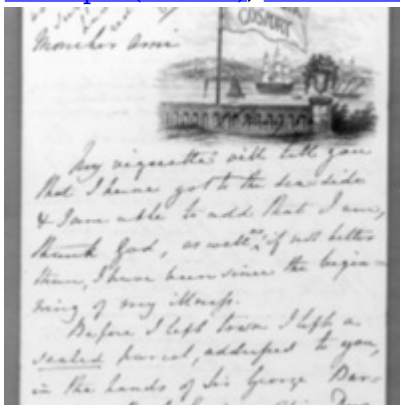 GOSPORT
Mon cher ami
My vignette will tell you
that I have got to the sea side
& I am able to add that I am,
thank God, as well as, if not better
than, I have been since the begin-
ning of my illness.
Before I left town I left a
sealed parcel, addressed to you,
in the hands of Sir George Bar-